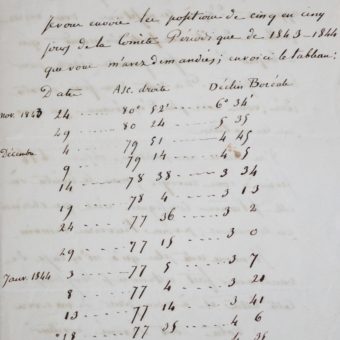 je vous envoie les positions de cinq en cinq
jours de la Comète Périodique de 1843-1844
que vous m'avez demandées; en voici le tableau:
Date Asc. droite Déclin Boréale
nov. 1843 24 ---- 80° 52' ---- 6° 34'
29 ---- 80 24 ---- 5 35
Décembre 4 ---- 79 51 ---- 4 45
9 ---- 79 14 ---- 4 5
14 ---- 78 38 ---- 3 34
19 ---- 78 4 ---- 3 13
24 ---- 77 36 ---- 3 2
29 ---- 77 15 ---- 3 0
Janv. 1844 3 ---- 77 5 ---- 3 7
8 ---- 77 4 ---- 3 21
13 ---- 77 14 ---- 3 41
18 ---- 77 35 ---- 4 6
4 35